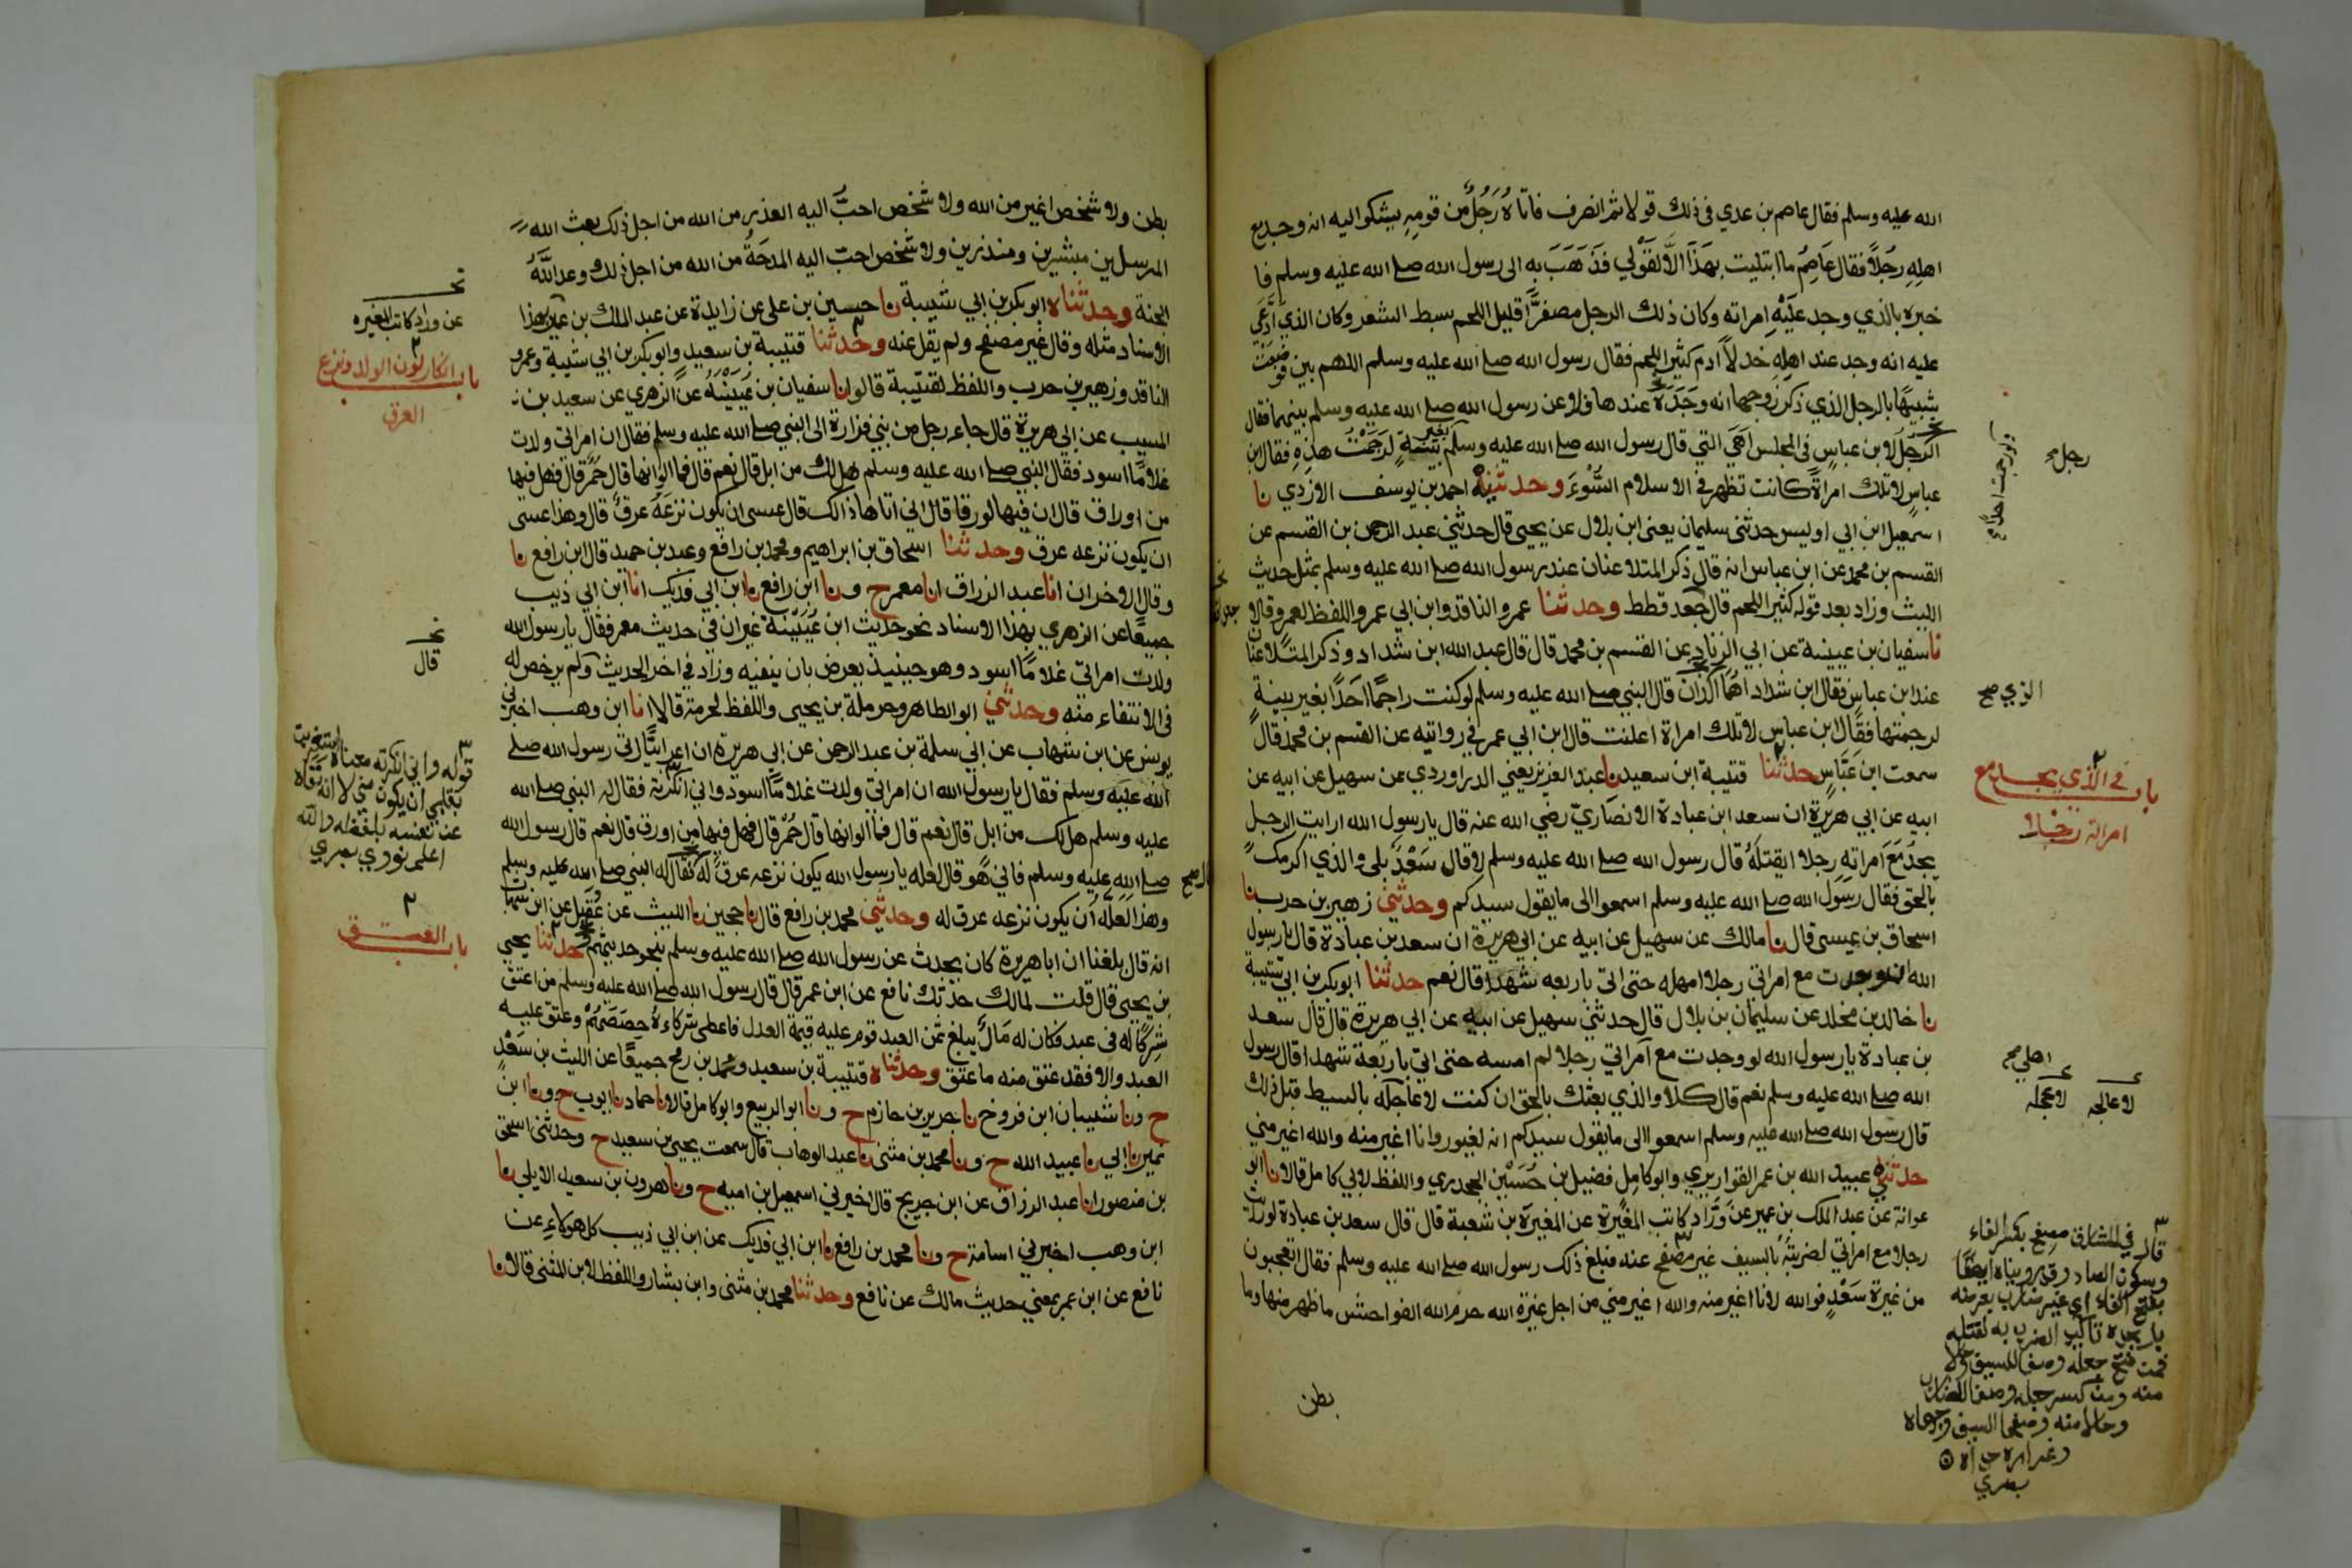 الله عليه وسلم فقال عاصم بن عدي في ذلك قولا ثم انصرف فاتاه رَجُلٌ من قومِهِ يشكوا اليه انه وجد مع
اهلِهِ رجُلاً فقال عَاصِمٌ ما ابتليت بهَذَا الاَّ لقَوْلي فذَهَبَ به الى رسول الله صلى الله عليه وسلم فا
خبره بالذي وجد عليْهِ امراته وكان ذلك الرجل مصفرًّا قليل اللحم سبط الشعر وكان الذي ادَّعَي
عليه انه وجد عند اهلِهِ خدلاً ادم كثير اللحم فقال رسول الله صلى الله عليه وسلم اللهم بين فوضعَتْ
شبيهًا بالرجل الذي ذكر زوجها انه وجَدَهُ عندها فلاعن رسول الله صلى الله عليه وسلم بينهما فقال
الرَّجلُ لابن عباسٍ في المجلس اهَيَ التي قال رسول الله صلى الله عليه وسلم بغير بَيِّنةٍ لرَجَمْتُ هذِهِ فقال ابن
عباسٍ لا تلك امراةٌ كانت تظهر في الاسلام السُّوْءَ وحدثنيه احمد بن يوسف الازدي نا
اسمعيل ابن ابي اويس حدثني سليمان يعني ابن بلال عن يحيى قال حدثني عبد الرحمن بن القسم عن
القسم بن محمد عن ابن عباس انه قال ذكر المتلاعنان عند رسول الله صلى الله عليه وسلم بمثل حديث
الليث وزاد بعد قوله كثير اللحم قال جَعد قطط وحدثنا عمرو الناقد وابن ابي عمر واللفظ لعمرو قالا
نا سفيان بن عيينة عن ابي الزناد عن القسم بن محمد قال قال عبد الله ابن شداد وذكر المتلاعنان
عند ابن عباسٍ فقال ابن شداد اهُمَا اللذَان قال النبي صلى الله عليه وسلم لو كنت راجمًا احَدًا بغير بينةٍ
لرجمتها فقال ابن عباس لا تلك امراة اعلنت قال ابن ابي عمر في روايته عن القسم بن محمد قال
سمعت ابن عبَّاسٍ حدثنا قتيبة ابن سعيد نا عبد العزيز يعني الدراوردي عن سهيل عن ابيه عن
ابيه عن ابي هريرة ان سعد ابن عبادة الانصاريّ رضي الله عنه قال يا رسول الله ارايت الرجل
يجدُ مَعَ امراتِهِ رجلا ايقتلهُ قال رسول الله صلى الله عليه وسلم لا قال سَعْدٌ بلى والذي اكرمك
بالحق فقال رسول الله صلى الله عليه وسلم اسمعوا الى ما يقول سيدكم وحدثني زهير بن حرب نا
اسحاق بن عيسى قال نا مالك عن سهيل عن ابيه عن ابي هريرة ان سعد بن عبادة قال يا رسول
الله ان وجدت مع امراتي رجلا امهله حتى اتي باربعه شهدا قال نعم حدثنا ابو بكر بن ابي شيبة
نا خالد بن مخلد عن سليمان بن بلال قال حدثني سهيل عن ابيه عن ابي هريرة قال قال سعد
بن عبادة يا رسول الله لو وجدت مع امراتي رجلا لم امسه حتى اتي باربَعة شهدا قال رسول
الله صلى الله عليه وسلم نعم قال كلا والذي بعثك بالحق ان كنت لاعاجله بالسيف قبل ذلك
قال رسول الله صلى الله عليه وسلم اسمعوا الى ما يقول سيدكم انه لغيور وانا اغير منه والله اغير مني
حدثني عبيد الله بن عمر القواريري وابو كامِل فضيل بن حُسَيْن الجحدري واللفظ لابي كامل قالا نا ابو
عوانة عن عبد الملك بن عمير عن ورَّاد كاتب المغيرة عن المغيرة بن شعبة قال قال سعد بن عبادة لو رايت
رجلا مع امراتي لضربتُه بالسيف غير مصْفح عنه فبلغ ذلك رسول الله صلى الله عليه وسلم فقال اتعجبون
من غيرة سَعْدٍ فوالله لانا اغير منه والله اغير مني من اجل غيرة الله حرم الله الفواحش ما ظهر منها وما
بطن
رجل
الذي صح
باب في الذي يجد مع
امراته رجلا
اهلي صح
لاعالجه لاعجله
قال في المشارق مصفح بكسر الفاء
وسكون الصاد وقد رويناه ايضًا
بفتح الفاء اي غير ضارب بعرضه
بل بحده تاكيد الضرب به لقتله
فمن فتح جعله وصفا للسيف وحالا
منه ومن كسر جعله وصفا للضارب
وحالا منه وصفحا السيف وجهاه
وغراره حداه
بطن ولا شخص اغير من الله ولا شخص احبُّ اليه العذر من الله من اجل ذلك بعث الله
المرسلين مبشرين ومنذرين ولا شخص احبّ اليه المدحَةُ من الله من اجل ذلك وعد اللَّهُ
الجنة وحدثناه ابو بكر بن ابي شيبة نا حسين بن علي عن زايدة عن عبد الملك بن عمير بهذا
الاسناد مثله وقال غير مصفح ولم يقل عنه وحدثنا قتيبة بن سعيد وابو بكر بن ابي شيبة وعمرو
الناقد وزهير بن حرب واللفظ لقتيبة قالوا نا سفيان بن عيَيْنةُ عن الزهري عن سعيد بن
المسيب عن ابي هريرة قال جاء رجل من بني فزارة الى النبي صلى الله عليه وسلم فقال ان امراتي ولدت
غلامًا اسود فقال النبي صلى الله عليه وسلم هل لك من ابل قال نعم قال فما الوانها قال حُمْرٌ قال فهل فيها
من اوراق قال ان فيها لورقا قال انى اتاها ذالك قال عسى ان يكون نزعَهُ عرقٌ قال وهذا عسى
ان يكون نزعه عرق وحدثنا اسحاق بن ابراهيم ومحمد بن رافع وعبد بن حميد قال ابن رافع نا
وقال الاخران انا عبد الرزاق انا معمر ح ونا ابن رافع نا ابن ابي فديك انا ابن ابي ذيب
جميعًا عن الزهري بهذا الاسناد نحو حديث ابن عُيَيْنة غير ان في حديث معمر فقال يا رسول الله
ولدت امراتي غلامًا اسود وهو حينيذ يعرض بان ينفيه وزاد في اخر الحديث ولم يرخص له
في الانتفاء منه وحدثني ابو الطاهر وحرملة بن يحيى واللفظ لحرملة قالا انا ابن وهب اخبرني
يونس عن ابن شهاب عن ابي سلمة بن عبد الرحمن عن ابي هريرة ان اعرابيًّا اتى رسول الله صلى
الله عليه وسلم فقال يا رسول الله ان امراتي ولدت غلامًا اسود واني انكرته فقال له النبي صلى الله
عليه وسلم هل لك من ابل قال نعم قال فما الوانها قال حُمْرٌ قال فهل فيها من اورق قال نعم قال رسول الله
صلى الله عليه وسلم فانى هُو قال لعله يا رسول الله يكون نزعه عرقٌ له فقال له النبي صلى الله عليه وسلم
وهذا لعلَّهُ ان يكون نزعه عرق له وحدثني محمد بن رافع قال نا حجين نا الليث عن عُقَيل عن ابن شهاب
انه قال بلغنا ان ابا هريرة كان يحدث عن رسول الله صلى الله عليه وسلم بنحو حديثهم حدثنا يحيى
بن يحيى قال قلت لمالك حدثك نافع عن ابن عمر قال قال رسول الله صلى الله عليه وسلم من اعتق
شِركًا له في عبد فكان له مَالٌ يبلغ ثمن العبد قوم عليه قيمة العدل فاعطى شركاءهُ حِصَصَهُمْ وعتق عليه
العبد والا فقد عتق منه ما عتق وحدثناه قتيبة بن سعيد ومحمد بن رمح جميعًا عن الليث بن سَعْدٍ
ح ونا شيبان ابن فروخ نا جرير بن حازم ح ونا ابو الربيع وابو كامل قالا نا حماد نا ايوب ح ونا ابن
نمير نا ابي نا عبيد الله ح ونا محمد بن مثنى نا عبد الوهاب قال سمعت يحيى بن سعيد ح وحدثني اسحق
بن منصور انا عبد الرزاق عن ابن جريج قال اخبرني اسمعيل بن امية ح ونا هرون بن سعيد الايلي نا
ابن وهب اخبرني اسامة ح ونا محمد بن رافع نا ابن ابي فديك عن ابن ابي ذييب كل هولاءِ عن
نافع عن ابن عمر بمعنى حديث مالك عن نافع وحدثنا محمد بن مثنى وابن بشار واللفظ لابن المثنى قالا نا
عن وراد كاتب المغيره
باب انكار لون الولد ونزع
العرق
قال
قوله واني انكرته معناه استغربت
بقلبي ان يكون مني لا انه نفاه
عن نفسه بلفظه والله
اعلم نووي بصري
باب العتق